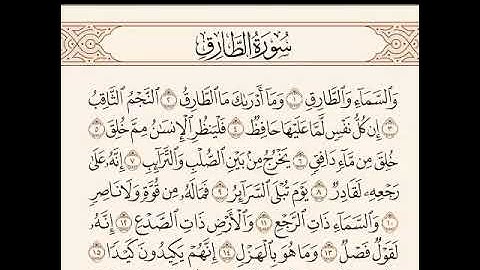 سُورَةُ الطَّارِقِ
وَالسَّمَاءِ وَالطَّارِقِ ١ وَمَا أَدْرَىٰكَ مَا الطَّارِقُ ٢ النَّجْمُ الثَّاقِبُ
٣ إِن كُلُّ نَفْسٍ لَّمَّا عَلَيْهَا حَافِظٌ ٤ فَلْيَنظُرِ الْإِنسَٰنُ مِمَّ خُلِقَ ٥
خُلِقَ مِن مَّاءٍ دَافِقٍ ٦ يَخْرُجُ مِنۢ بَيْنِ الصُّلْبِ وَالتَّرَائِبِ ٧ إِنَّهُۥ عَلَىٰ
رَجْعِهِۦ لَقَادِرٌ ٨ يَوْمَ تُبْلَى السَّرَائِرُ ٩ فَمَا لَهُۥ مِن قُوَّةٍ وَلَا نَاصِرٍ
١٠ وَالسَّمَاءِ ذَاتِ الرَّجْعِ ١١ وَالْأَرْضِ ذَاتِ الصَّدْعِ ١٢ إِنَّهُۥ
لَقَوْلٌ فَصْلٌ ١٣ وَمَا هُوَ بِالْهَزْلِ ١٤ إِنَّهُمْ يَكِيدُونَ كَيْدًا ١٥